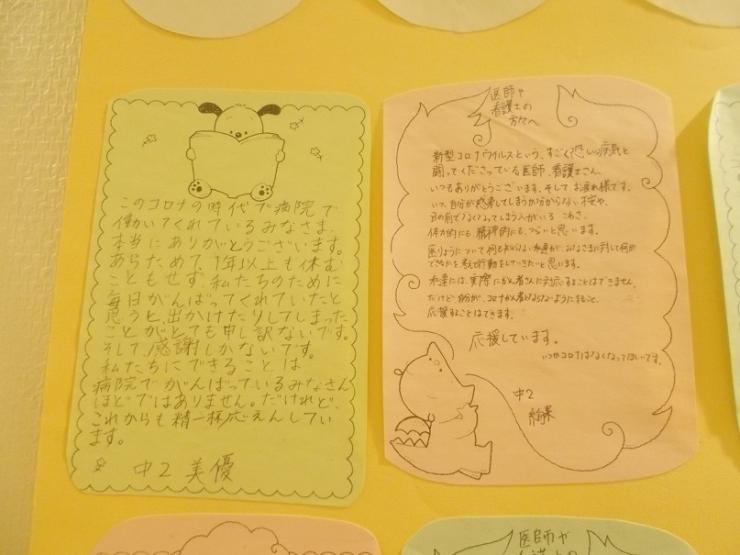 このコロナの時代で病院で
働いてくれているみなさま、
本当にありがとうございます。
あらためて、1年以上も休む
こともせず、私たちのために
毎日がんばってくれていたと
思うと、出かけたりしてしまった
ことがとても申し訳ないです。
そして感謝しかないです。
私たちにできることは
病院でがんばっているみなさん
ほどではありません。だけれど、
これからも精一杯応えんしてい
ます。
中2 美優
医師や
看護士の
方々へ
新型コロナウイルスという、すごく恐い病気と
闘ってくださっている医師、看護士さん、
いつもありがとうございます。そして お疲れ様です。
いつ、自分が感染してしまうか分からない不安や、
目の前で亡くなってしまう人がいる こわさ、
体力的にも、精神的にも、つらいと思います。
医りょうについて何も知らない私達が、みなさまに対して何が
できるかを考え行動をしていきたいと思います。
私達には、実際にかん者さんに対応することはできません。
だけど自分が、コロナかん者とならないようにすること、
応援することはできます。
応援しています。
いつかコロナはなくなってほしいです。
中2
医師や